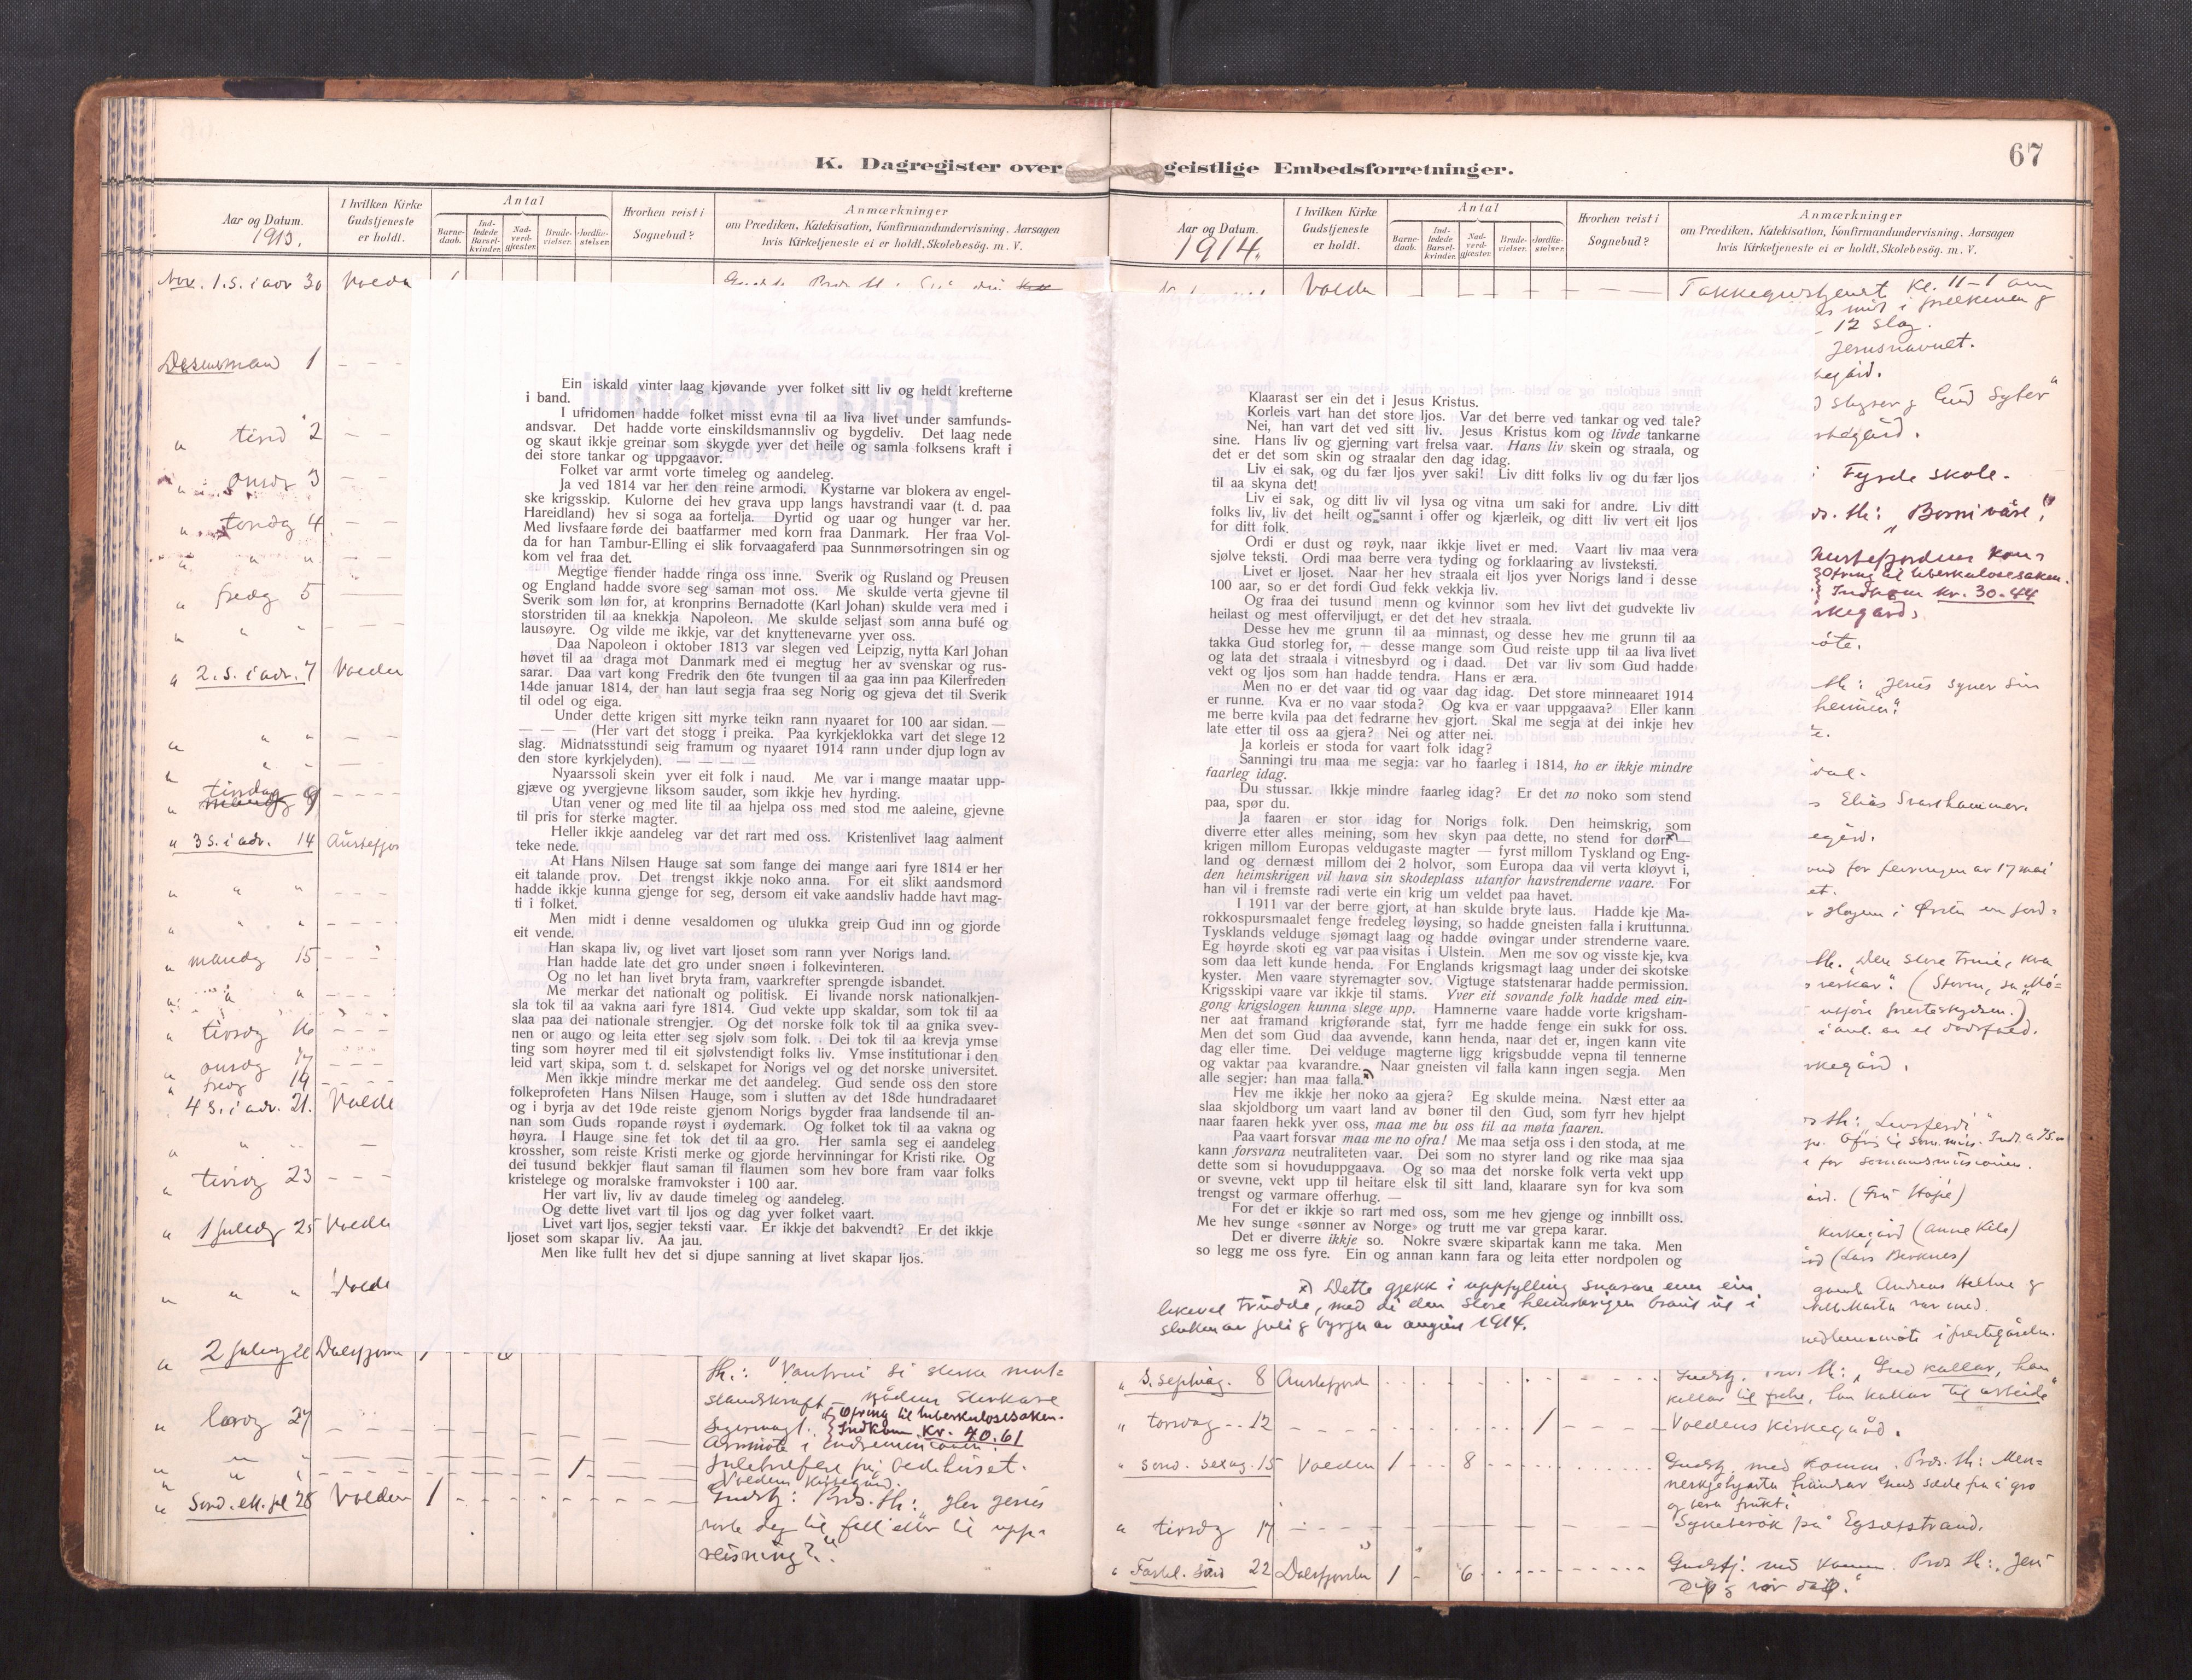 K. Dagregister over geistlige Embedsforretninger.
67
Aar og Datum.
1913.
I hvilken Kirke
Gudstjeneste
er holdt.
Antal
Barne-
daab.
Ind-
ledede
Barsel-
kvinder.
Nad-
verd-
gjester.
Brude-
vielser.
Jordfæ-
stelser.
Hvorhen reist i
Sognebud?
Anmærkninger
om Prædiken, Katekisation, Konfirmandundervisning. Aarsagen
hvis Kirketjeneste ei er holdt, Skolebesög. m. V.
Nov. 1. S. i adv 30 Volda 1
Desember 1
" tirsd 2
" onsd 3
" torsdag 4
" fredag 5
" 2. S. i adv. 7 Volden
" tirsdag 9
" 3 S. i adv. 14
" mandag 15
" tirsdag 16
" onsdag 17
" fredag 19
4 S. i adv. 21. Volde
" tirsdag 23
" 1 juledag 25 Volden
" " " Volde
Ein iskald vinter laag kjøvande yver folket sitt liv og heldt krefterne
i band.
I ufridomen hadde folket misst evna til aa liva livet under samfunds-
andsvar. Det hadde vorte einskildsmannsliv og bygdeliv. Det laag nede
og skaut ikkje greinar som skygde yver det heile og samla folksens kraft i
dei store tankar og uppgaavor.
Folket var armt vorte timeleg og aandeleg.
Ja ved 1814 var her den reine armodi. Kystarne var blokera av engel-
ske krigsskip. Kulorne dei hev grava upp langs havstrandi vaar (t. d. paa
Hareidland) hev si soga aa fortelja. Dyrtid og uaar og hunger var her.
Med livsfaare førde dei baatfarmer med korn fraa Danmark. Her fraa Vol-
da for han Tambur-Elling ei slik forvaagaferd paa Sunnmørsotringen sin og
kom vel fraa det.
Megtige fiender hadde ringa oss inne. Sverik og Rusland og Preusen
og England hadde svore seg saman mot oss. Me skulde verta gjevne til
Sverik som løn for, at kronprins Bernadotte (Karl Johan) skulde vera med i
storstriden til aa knekkja Napoleon. Me skulde seljast som anna bufé og
lausøyre. Og vilde me ikkje, var det knyttenevarne yver oss.
Daa Napoleon i oktober 1813 var slegen ved Leipzig, nytta Karl Johan
høvet til aa draga mot Danmark med ei megtug her av svenskar og rus-
sarar. Daa vart kong Fredrik den 6te tvungen til aa gaa inn paa Kilerfreden
14de januar 1814, der han laut segja fraa seg Norig og gjeva det til Sverik
til odel og eiga.
Under dette krigen sitt myrke teikn rann nyaaret for 100 aar sidan. —
— — — (Her vart det stogg i preika. Paa kyrkjeklokka vart det slege 12
slag. Midnatsstundi seig framum og nyaaret 1914 rann under djup logn av
den store kyrkjelyden). — — — —
Nyaarssoli skein yver eit folk i naud. Me var i mange maatar upp-
gjæve og yvergjevne liksom sauder, som ikkje hev hyrding.
Utan vener og med lite til aa hjelpa oss med stod me aaleine, gjevne
til pris for sterke magter.
Heller ikkje aandeleg var det rart med oss. Kristenlivet laag aalment
teke nede.
At Hans Nilsen Hauge sat som fange dei mange aari fyre 1814 er her
eit talande prov. Det trengst ikkje noko anna. For eit slikt aandsmord
hadde ikkje kunna gjenge for seg, dersom eit vake aandsliv hadde havt mag-
ti i folket.
Men midt i denne vesaldomen og ulukka greip Gud inn og gjorde
eit vende.
Han skapa liv, og livet vart ljoset som rann yver Norigs land.
Han hadde late det gro under snøen i folkevinteren.
Og no let han livet bryta fram, vaarkrefter sprengde isbandet.
Me merkar det nationalt og politisk. Ei livande norsk nationalkjen-
sla tok til aa vakna aari fyre 1814. Gud vekte upp skaldar, som tok til aa
slaa paa dei nationale strengjer. Og det norske folk tok til aa gnika svev-
nen or augo og leita etter seg sjølv som folk. Dei tok til aa krevja ymse
ting som høyrer med til eit sjølvstendigt folks liv. Ymse institutionar i den
leid vart skipa, som t. d. selskapet for Norigs vel og det norske universitet.
Men ikkje mindre merkar me det aandeleg. Gud sende oss den store
folkeprofeten Hans Nilsen Hauge, som i slutten av det 18de hundradaaret
og i byrja av det 19de reiste gjenom Norigs bygder fraa landsende til an-
nan som Guds ropande røyst i øydemark. Og folket tok til aa vakna og
høyra. I Hauge sine fet tok det til aa gro. Her samla seg ei aandeleg
krossher, som reiste Kristi merke og gjorde hervinningar for Kristi rike. Og
dei tusund bekkjer flaut saman til flaumen som hev bore fram vaar folks
kristelege og moralske framvokster i 100 aar.
Her vart liv, liv av daude timeleg og aandeleg.
Og dette livet vart til ljos og dag yver folket vaart.
Livet vart ljos, segjer teksti vaar. Er ikkje det bakvendt? Er det ikkje
ljoset som skapar liv. Aa jau.
Men like fullt hev det si djupe sanning at livet skapar ljos.
" 2 juledag 26 Dalsfjorden 1
th.: Vantrui si sterke mot-
standskraft – nådens sterkare
Ofring til tuberkulosesaken.
Indkom Kr. 40.61
" laurdag 27
Årsmøte i Indremisionen.
Juletrefest på Bedehuset.
Voldens Kirkegård.
" Sønd. ett. jul 28 Volden 1 Gudstj: Præd. th: "Her Jesus
vorte deg til fall eller til upp-
reisning?"
Aar og Datum.
1914.
I hvilken Kirke
Gudstjeneste
er holdt.
Antal
Barne-
daab.
Ind-
ledede
Barsel-
kvinder.
Nad-
verd-
gjester.
Brude-
vielser.
Jordfæ-
stelser.
Hvorhen reist i
Sognebud?
Anmærkninger
om Prædiken, Katekisation, Konfirmandundervisning. Aarsagen
hvis Kirketjeneste ei er holdt, Skolebesög. m. V.
Volden
Takkegudstjenest Kl. 11–1 om
12 slag.
Jesusnavnet.
Klaarast ser ein det i Jesus Kristus.
Korleis vart han det store ljos. Var det berre ved tankar og ved tale?
Nei, han vart det ved sitt liv. Jesus Kristus kom og livde tankarne
sine. Hans liv og gjerning vart frelsa vaar. Hans liv skein og straala, og
det er det som skin og straalar den dag idag.
Liv ei sak, og du fær ljos yver saki! Liv ditt folks liv og du fær ljos
til aa skyna det!
Liv ei sak, og ditt liv vil lysa og vitna um saki for andre. Liv ditt
folks liv, liv det heilt og sannt i offer og kjærleik, og ditt liv vert eit ljos
for ditt folk.
Ordi er dust og røyk, naar ikkje livet er med. Vaart liv maa vera
sjølve teksti. Ordi maa berre vera tyding og forklaaring av livsteksti.
Livet er ljoset. Naar her hev straala eit ljos yver Norigs land i desse
100 aar, so er det fordi Gud fekk vekkja liv.
Og fraa dei tusund menn og kvinnor som hev livt det gudvekte liv
heilast og mest offerviljugt, er det det hev straala.
Desse hev me grunn til aa minnast, og desse hev me grunn til aa
takka Gud storleg for, — desse mange som Gud reiste upp til aa liva livet
og lata det straala i vitnesbyrd og i daad. Det var liv som Gud hadde
vekt og ljos som han hadde tendra. Hans er æra.
Men no er det vaar tid og vaar dag idag. Det store minneaaret 1914
er runne. Kva er no vaar stoda? Og kva er vaar uppgaava? Eller kann
me berre kvila paa det fedrarne hev gjort. Skal me segja at dei inkje hev
late etter til oss aa gjera? Nei og atter nei.
Ja korleis er stoda for vaart folk idag?
Sanningi tru maa me segja: var ho faarleg i 1814, ho er ikkje mindre
faarleg idag.
Du stussar. Ikkje mindre faarleg idag? Er det no noko som stend
paa, spør du.
Ja faaren er stor idag for Norigs folk. Den heimskrig, som
diverre etter alles meining, som hev skyn paa dette, no stend for dørr x) —
krigen millom Europas veldugaste magter — fyrst millom Tyskland og Eng-
land og dernæst millom dei 2 holvor, som Europa daa vil verta kløyvt i,
den heimskrigen vil hava sin skodeplass utanfor havstrenderne vaare. For
han vil i fremste radi verte ein krig um veldet paa havet.
I 1911 var der berre gjort, at han skulde bryte laus. Hadde kje Ma-
rokkospursmaalet fenge fredeleg løysing, so hadde gneisten falla i kruttunna.
Tysklands velduge sjømagt laag og hadde øvingar under strenderne vaare.
Eg høyrde skoti eg var paa visitas i Ulstein. Men me sov og visste kje, kva
som daa lett kunde henda. For Englands krigsmagt laag under dei skotske
kyster. Men vaare styremagter sov. Vigtuge statstenarar hadde permission.
Krigsskipi vaare var ikkje til stams. Yver eit sovande folk hadde med ein-
gong krigslogen kunna slege upp. Hamnerne vaare hadde vorte krigsham-
ner aat framand krigførande stat, fyrr me hadde fenge ein sukk for oss.
Men det som Gud daa avvende, kann henda, naar det er, ingen kann vite
dag eller time. Dei velduge magterne ligg krigsbudde vepna til tennerne
og vaktar paa kvarandre. Naar gneisten vil falla kann ingen segja. Men
alle segjer: han maa falla.
Hev me ikkje her noko aa gjera? Eg skulde meina. Næst etter aa
slaa skjoldborg um vaart land av bøner til den Gud, som fyrr hev hjelpt
naar faaren hekk yver oss, maa me bu oss til aa møta faaren.
Paa vaart forsvar maa me no ofra! Me maa setja oss i den stoda, at me
kann forsvara neutraliteten vaar. Dei som no styrer land og rike maa sjaa
dette som si hovuduppgaava. Og so maa det norske folk verta vekt upp
or svevne, vekt upp til heitare elsk til sitt land, klaarare syn for kva som
trengst og varmare offerhug. —
For det er ikkje so rart med oss, som me hev gjenge og innbillt oss.
Me hev sunge «sønner av Norge» og trutt me var grepa karar.
Det er diverre ikkje so. Nokre svære skipartak kann me taka. Men
so legg me oss fyre. Ein og annan kann fara og leita etter nordpolen og
x) Dette gjekk i uppfylling snarare enn ein
likevel trudde, med di den store heimskrigen braut ut i
slutten av juli og byrja av august 1914.
Fyrde skole.
"Borni våre".
Austefjordens kon-
Ofring til tuberkulosesaken.
Indkom Kr. 30.44
th: "Jesus syner sin
heimen".
Elias Svarthammer.
for feiringen av 17 mai
(Fru Høje)
Kirkegård (Anne Kile)
" S. septuag. 8 Austefjord Gudstj. Præd. th: "Gud kallar, han
kallar til frelse, han kallar til arbeide"
" torsdag 12 1 Voldens Kirkegård.
" sønd. sexag. 15 Volden 1 8 Gudstj. med komm. Præd. th: Men-
neskjehjarta hindrar Guds sæde frå å gro
og bera frukt.
" tirsdag 17 Sykebesøk på Egsetstrand.
" Fastel. sønd 22 Dalsfjorden 1 6 Gudstj. med komm. Præd. th: "Jesu
dåp og vår dåp."